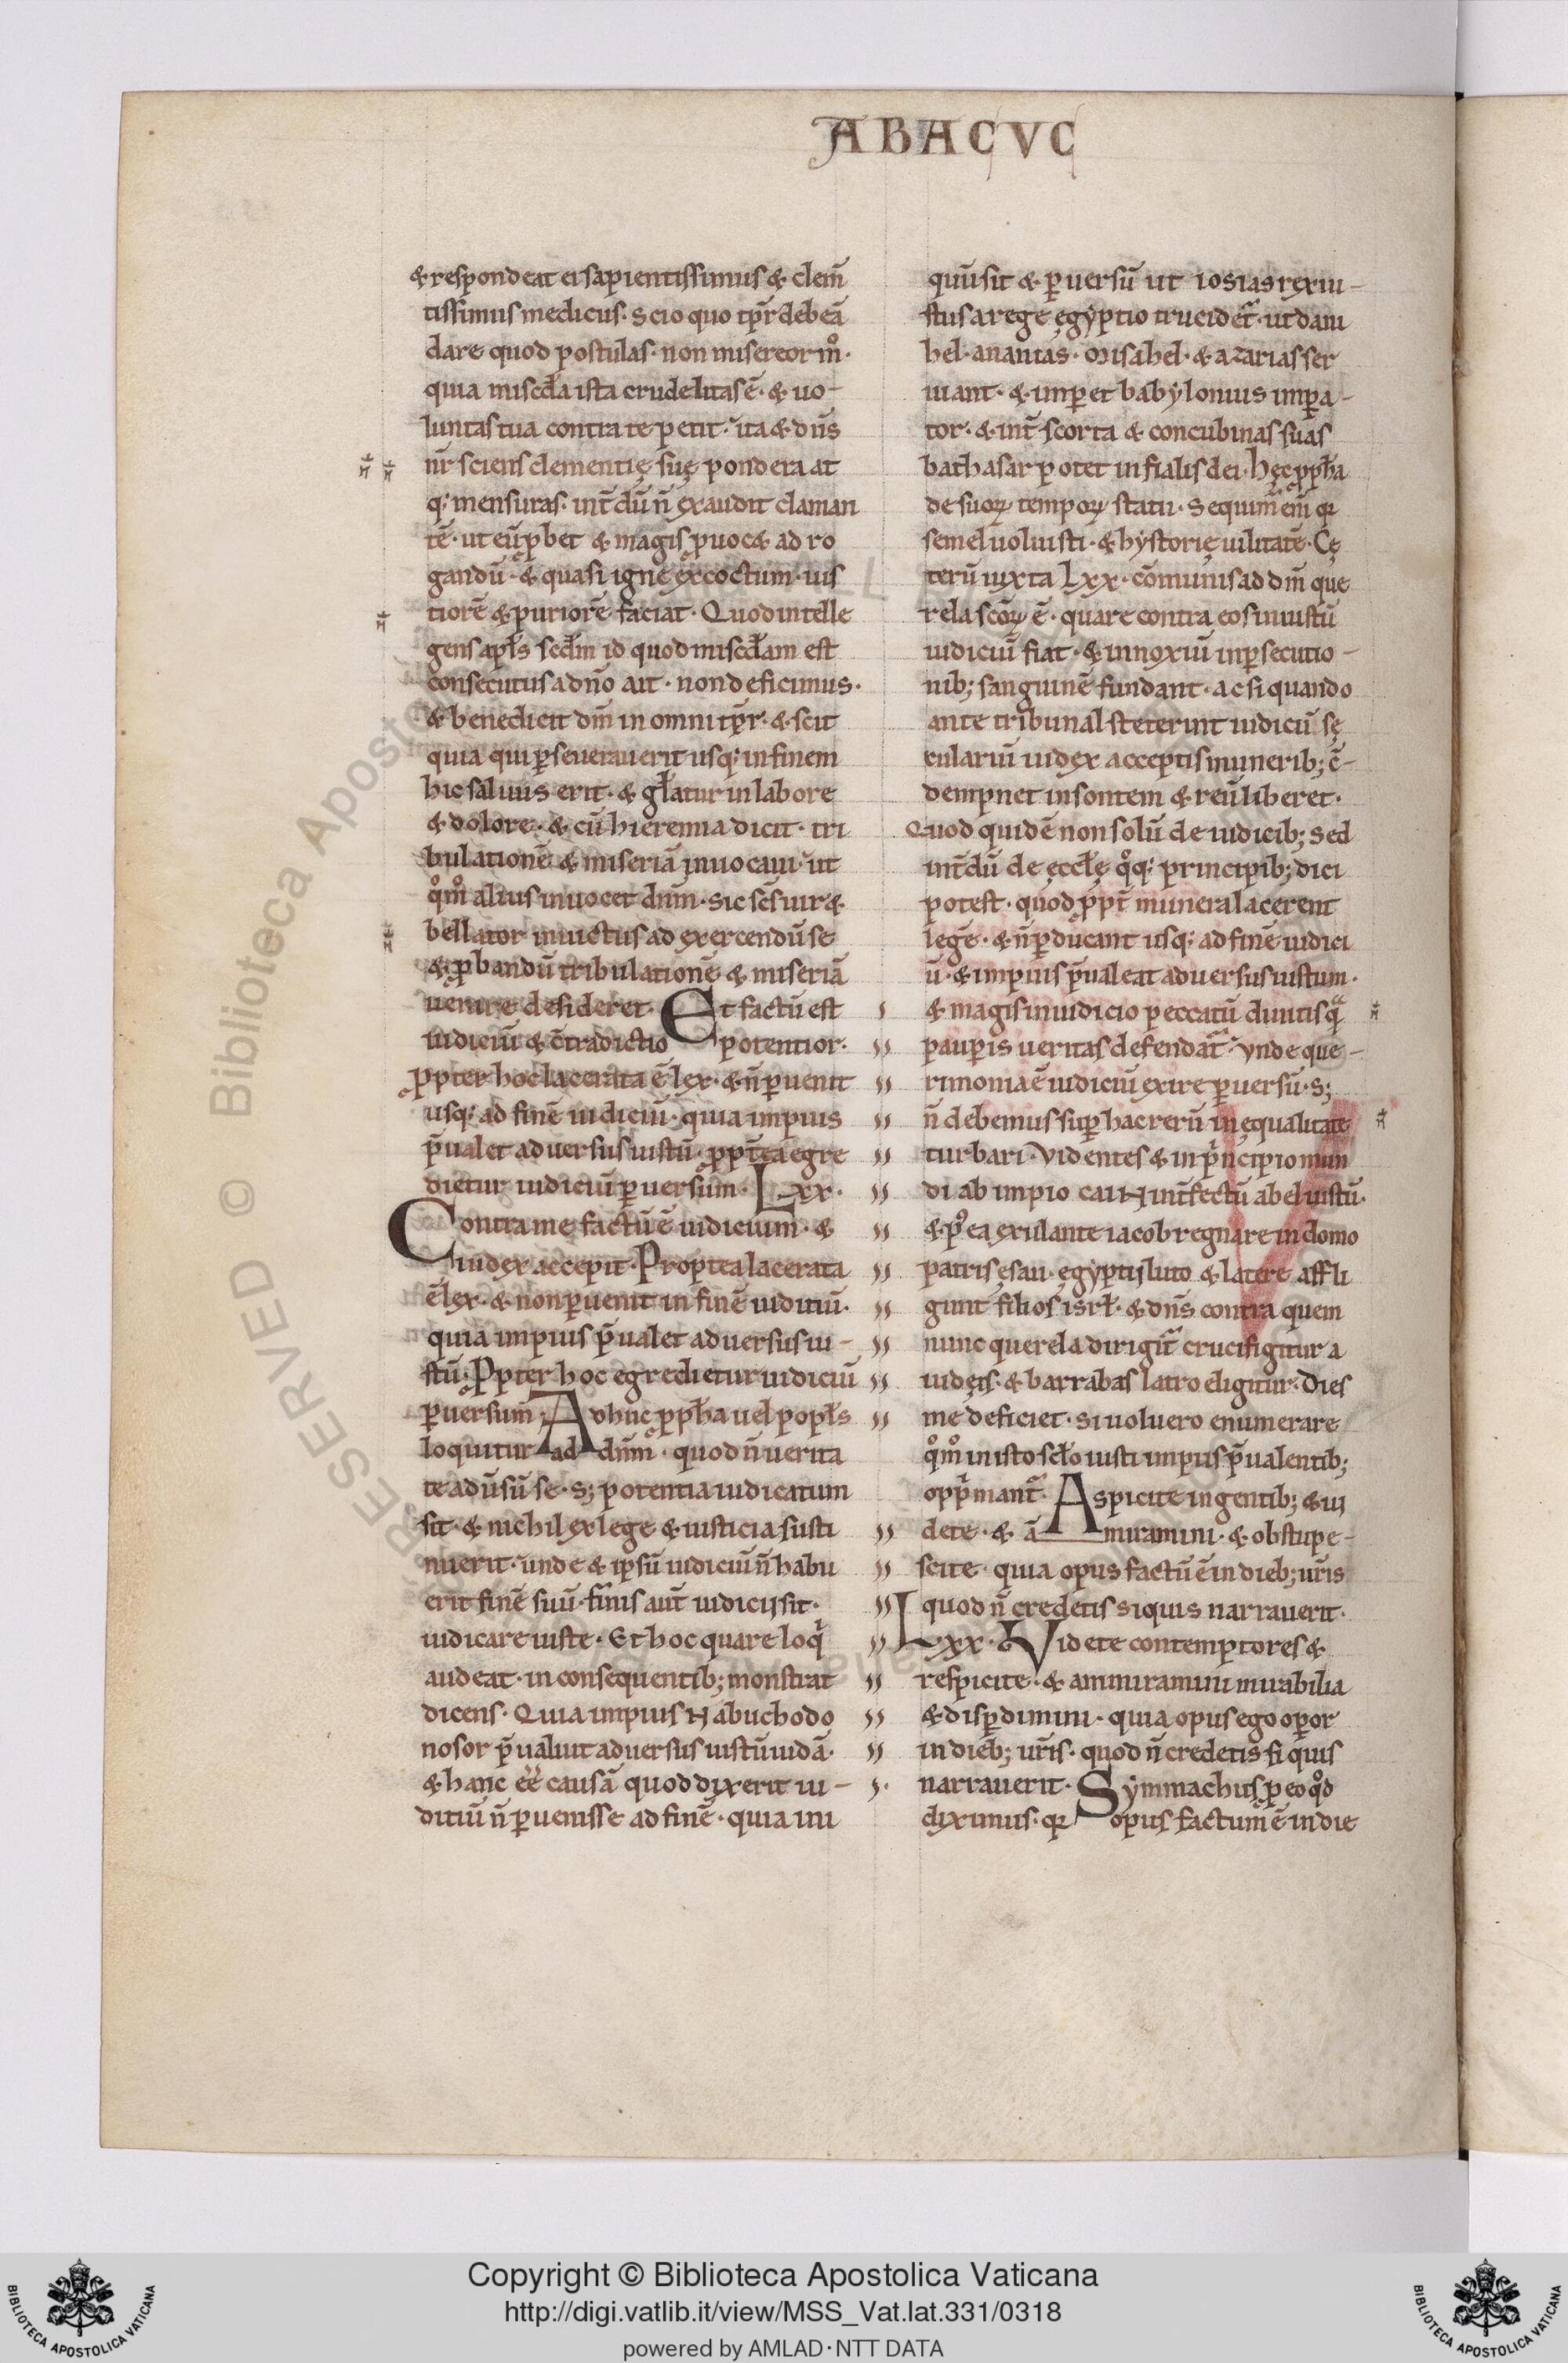 ABACVC
& respondeat ei sapientissimus & clem̄
tissimus medicus. Scio quo tp̄r debeā
dare quod postulas. non misereor m̊.
quia misc̄da ista crudelitas ē. & uo-
luntas tua contra te petit. ita & dn̄s
nr̄ sciens clementię suę pondera at
q; mensuras. int̄dū n̄ exaudit claman
tē. ut eū ꝓbet & magis ꝓuocæ ad ro
gandū. & quasi igne excoctum. ius
tiorē & puriorē faciat. Quod intelle
gens apl̄s sc̄dm id quod misc̄dam est
consecutus a dn̄o ait. non deficimus.
& benedicit dm̄ in omni tp̄r. & scit
quia qui ꝑseuerauerit usq; in finem
hic saluus erit. & gl̄atur in labore
& dolore. & cū hieremia dicit. tri
bulationē & miseriā inuocaui. ut
q̊m̊ alius inuocet dnm̄. sic sc̄s uir &
bellator inuictus ad exercendū se
& ꝓbandū tribulationē & miseriā
uenire desideret. Et factū est
iudiciū & c̄tradictio potentior.
ꝓpter hoc lacerata ē lex. & n̄ ꝑuenit
usq; ad finē iudiciū. quia impius
p̄ualet aduersus iustū. ꝓpt̄ea egre
dietur iudiciū ꝑuersum. Lxx.
Contra me factū ē iudicium. &
iudex accepit. Propt̄ea lacerata
ē lex. & non ꝑuenit in finē iuditiū.
quia impius p̄ualet aduersus iu-
stū. Ꝓpter hoc egredietur iudiciū
ꝑuersum. Adhuc ꝓph̄a uel popl̄s
loquitur ad dnm̄. quod n̄ uerita
te aduīsū se. s; potentia iudicatum
sit. & nichil ex lege & iusticia susti
nuerit. unde & ipsū iudiciū n̄ habu
erit finē suū. finis aut̄ iudicij sit.
iudicare iuste. Et hoc quare loqͥ
audeat. in consequentib; monstrat
dicens. Quia impius Nabuchodo
nosor p̄ualuit aduersus iustū iudā.
& hanc eē causā quod dixerit iu-
ditiū n̄ ꝑuenisse ad finē. quia ini
quū sit & ꝑuersū ut iosias rex iu-
stus a rege egyptio trucidet᷑. ut dani
hel. ananias. misahel. & azarias ser
uiant. & imꝑet babylonius imꝑa-
tor. & int̄ scorta & concubinas suas
bathasar potet in fialis dei. hęc ꝓph̄a
de suoꝝ tempoꝝ statu. Sequim̄ em̄ qꝛ
semel uoluisti. & hystorię uilitatē. Cę
terū iuxta Lxx. cōmunis ad dm̄ que
rela sc̄oꝝ ē. quare contra eos iniustū
iudiciū fiat. & innoxiū in ꝑsecutio-
nib; sanguinē fundant. ac si quando
ante tribunal steterint iudicū sę
culariū iudex acceptis munerib; c̄-
dempnet insontem & reū liberet.
Quod quidē non solū de iudicib; sed
int̄dū de eccl̄ę q̊q; principib; dici
potest. quod ꝓpt̄ munera lacerent
legē. & n̄ ꝑducant usq; ad finē iudici
ū. & impius p̄ualeat aduersus iustum.
& magis in iudicio peccatū diuitis qͣ
pauꝑis ueritas defendat᷑. Vnde que-
rimonia ē iudiciū exire ꝑuersū. s;
n̄ debemus suꝑ hac rerū inęqualitate
turbari. Videntes & in pͥncipio mun
di ab impio caiN int̄fectū abel iustū.
& p̊ ea exulante iacob regnare in domo
patris esau. egyptij luto & latere affli
gunt filios isrl̄. & dn̄s contra quem
nunc querela dirigit᷑ crucifigitur a
iudęis. & barrabas latro eligitur. Dies
me deficiet. si uoluero enumerare
q̊m̊ in isto scl̄o iusti impiis p̄ualentib;
oppͥmant᷑. Aspicite in gentib; & ui
dete. & ā miramini. & obstupe-
scite. quia opus factū ē in dieb; ur̄is
quod n̄ credetis si quis narrauerit.
Lxx. Videte contemptores &
respicite. & ammiramini mirabilia
& disꝑdimini. quia opus ego oꝑor
in dieb; ur̄is. quod n̄ credetis si quis
narrauerit. Symmachus p eo q̊d
diximus. qꝛ opus factum ē in die
Copyright © Biblioteca Apostolica Vaticana
http://digi.vatlib.it/view/MSS_Vat.lat.331/0318
powered by AMLAD·NTT DATA
BIBLIOTECA APOSTOLICA VATICANA
BIBLIOTECA APOSTOLICA VATICANA